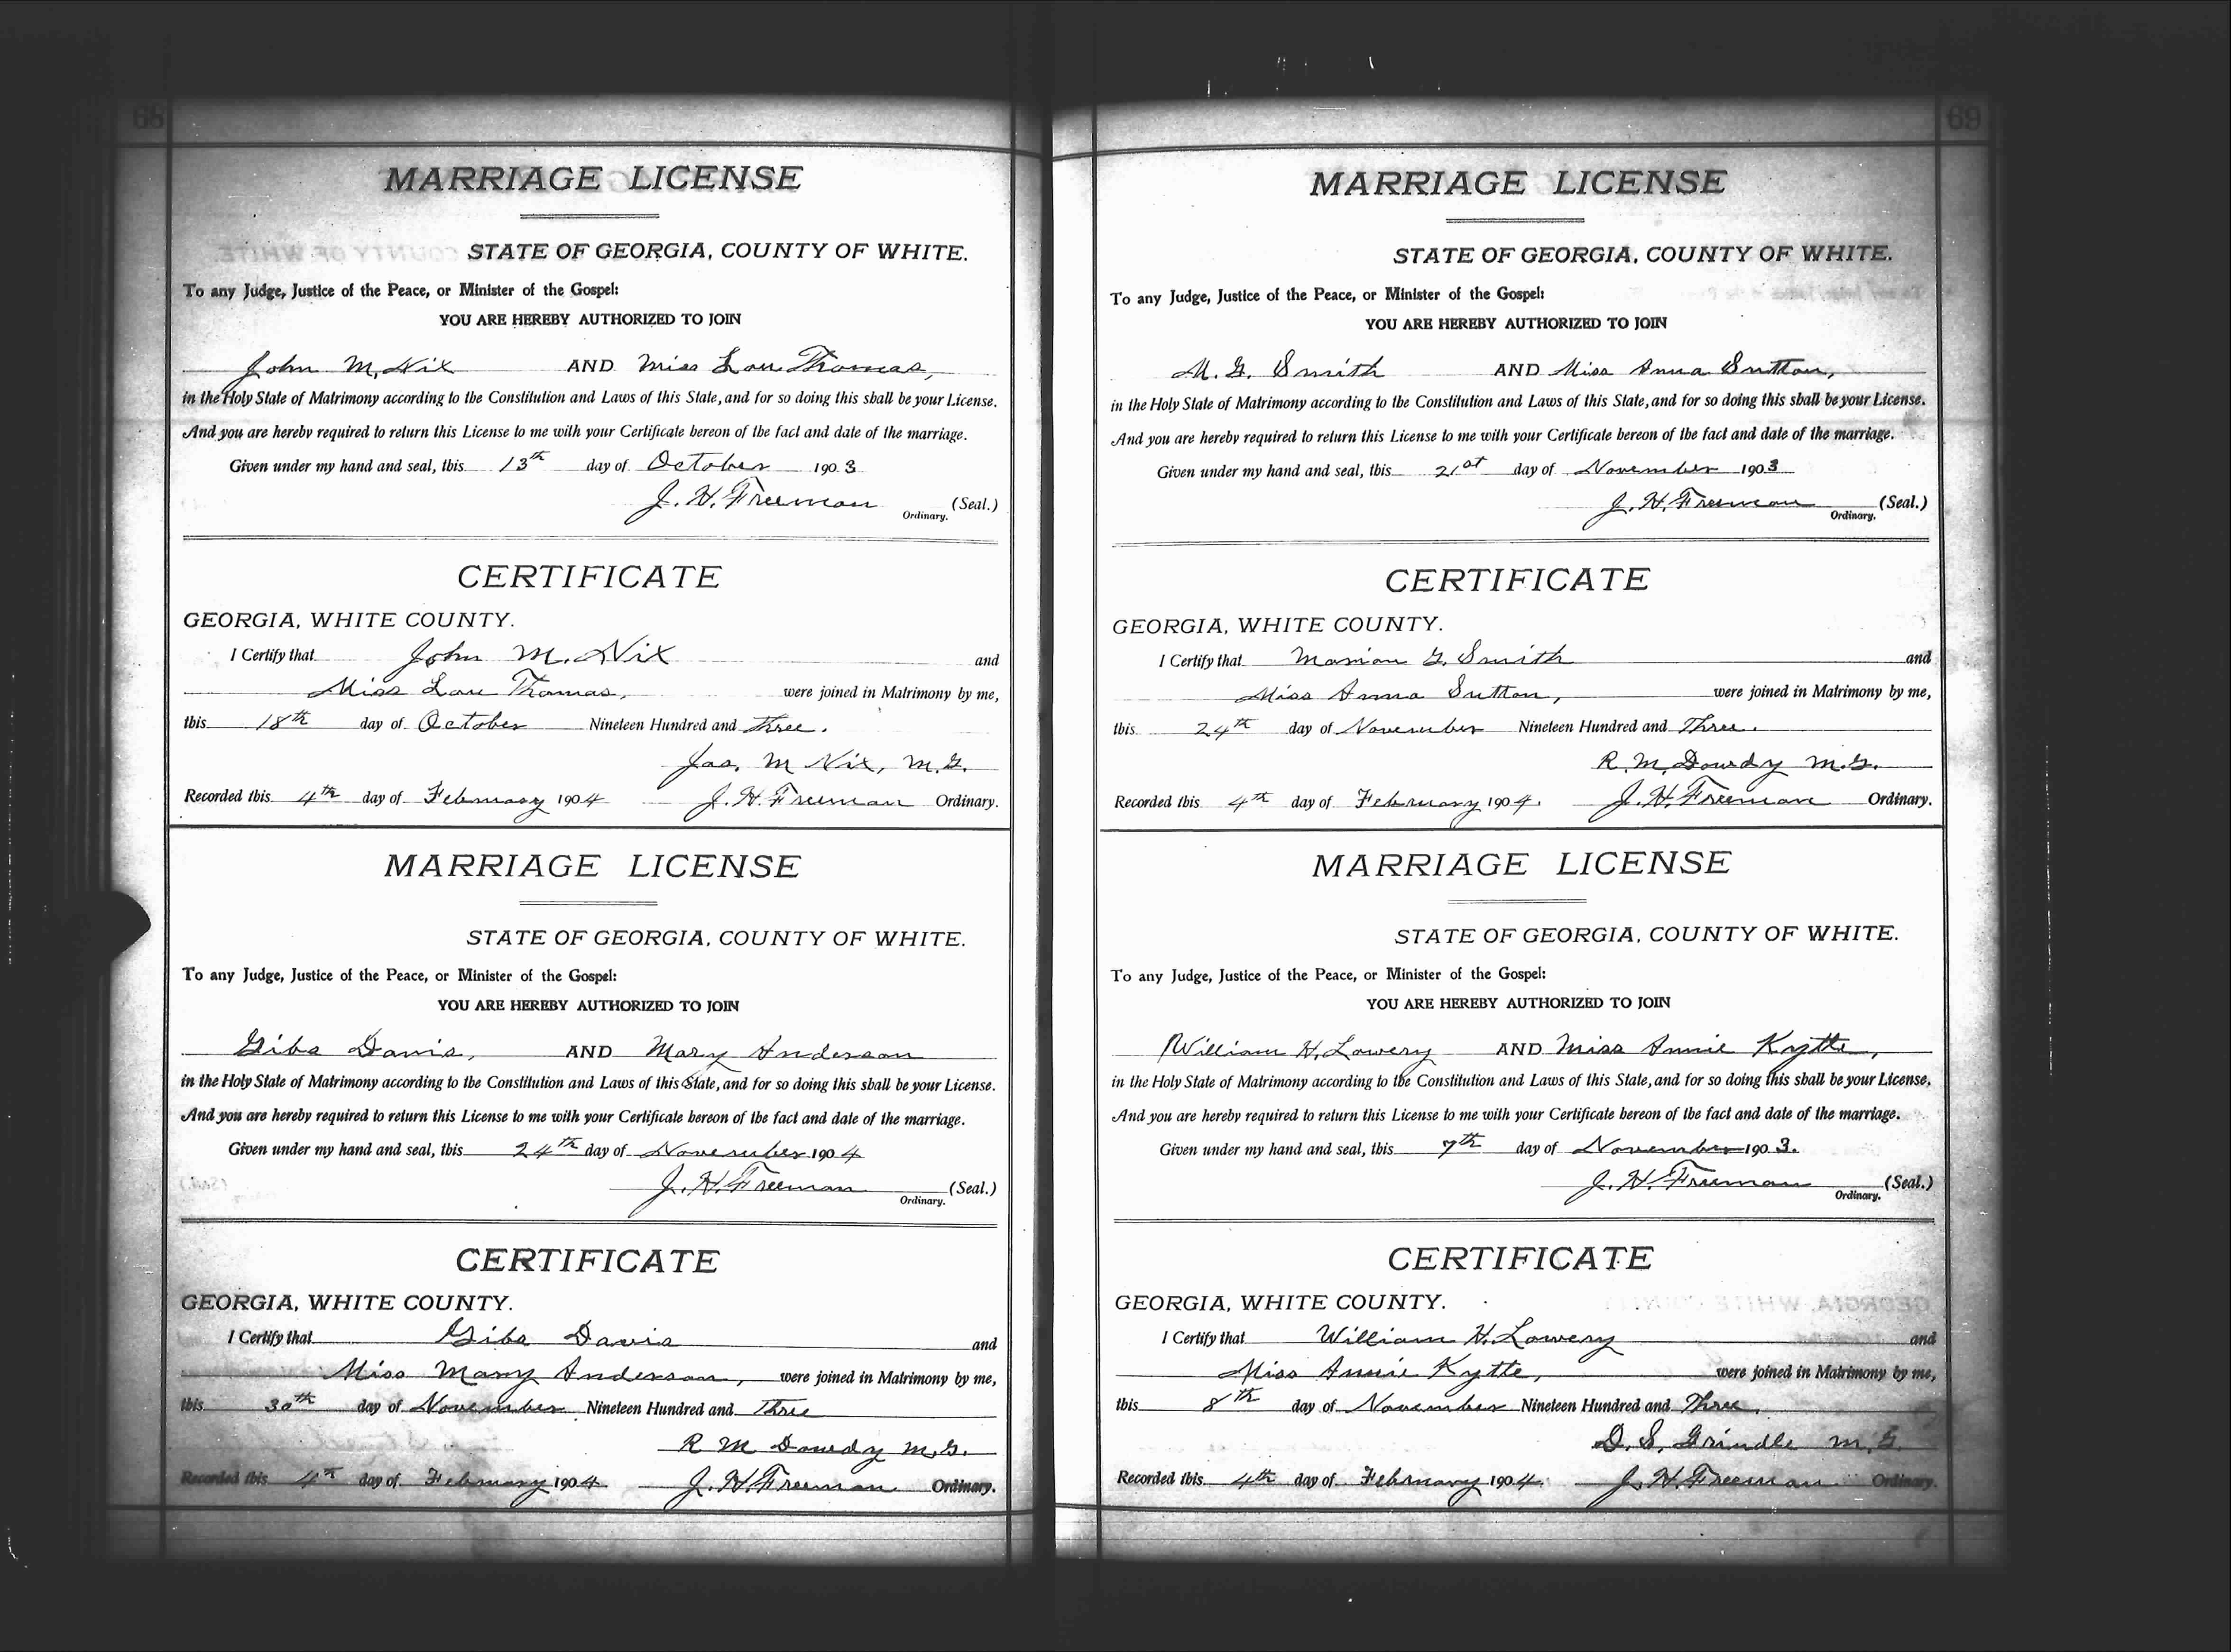 68
MARRIAGE LICENSE
STATE OF GEORGIA, COUNTY OF WHITE.
To any Judge, Justice of the Peace, or Minister of the Gospel:
YOU ARE HEREBY AUTHORIZED TO JOIN
John M. Nix AND Miss Lou Thomas,
in the Holy State of Matrimony according to the Constitution and Laws of this State, and for so doing this shall be your License.
And you are hereby required to return this License to me with your Certificate hereon of the fact and date of the marriage.
Given under my hand and seal, this 13th day of October 1903
J. H. Freeman (Seal.)
Ordinary.
CERTIFICATE
GEORGIA, WHITE COUNTY.
I Certify that John M. Nix and
Miss Lou Thomas, were joined in Matrimony by me,
this 18th day of October Nineteen Hundred and Three.
Jas. M Nix, M.G.
Recorded this 4th day of February 1904 J. H. Freeman Ordinary.
MARRIAGE LICENSE
STATE OF GEORGIA, COUNTY OF WHITE.
To any Judge, Justice of the Peace, or Minister of the Gospel:
YOU ARE HEREBY AUTHORIZED TO JOIN
Gibs Davis, AND Mary Anderson
in the Holy State of Matrimony according to the Constitution and Laws of this State, and for so doing this shall be your License.
And you are hereby required to return this License to me with your Certificate hereon of the fact and date of the marriage.
Given under my hand and seal, this 24th day of November 1904
J. H. Freeman (Seal.)
Ordinary.
CERTIFICATE
GEORGIA, WHITE COUNTY.
I Certify that Gibs Davis and
Miss Mary Anderson, were joined in Matrimony by me,
this 30th day of November Nineteen Hundred and Three
R M Dowdy M.G.
Recorded this 4th day of February 1904 J. H. Freeman Ordinary.
69
MARRIAGE LICENSE
STATE OF GEORGIA, COUNTY OF WHITE.
To any Judge, Justice of the Peace, or Minister of the Gospel:
YOU ARE HEREBY AUTHORIZED TO JOIN
M. G. Smith AND Miss Anna Sutton,
in the Holy State of Matrimony according to the Constitution and Laws of this State, and for so doing this shall be your License.
And you are hereby required to return this License to me with your Certificate hereon of the fact and date of the marriage.
Given under my hand and seal, this 21st day of November 1903
J. H. Freeman (Seal.)
Ordinary.
CERTIFICATE
GEORGIA, WHITE COUNTY.
I Certify that Marion G. Smith and
Miss Anna Sutton, were joined in Matrimony by me,
this 24th day of November Nineteen Hundred and Three.
R. M. Dowdy M.G.
Recorded this 4th day of February 1904. J. H. Freeman Ordinary.
MARRIAGE LICENSE
STATE OF GEORGIA, COUNTY OF WHITE.
To any Judge, Justice of the Peace, or Minister of the Gospel:
YOU ARE HEREBY AUTHORIZED TO JOIN
William H. Lowery AND Miss Annie Kytle,
in the Holy State of Matrimony according to the Constitution and Laws of this State, and for so doing this shall be your License.
And you are hereby required to return this License to me with your Certificate hereon of the fact and date of the marriage.
Given under my hand and seal, this 7th day of November 1903.
J. H. Freeman (Seal.)
Ordinary.
CERTIFICATE
GEORGIA, WHITE COUNTY.
I Certify that William H. Lowery and
Miss Annie Kytle, were joined in Matrimony by me,
this 8th day of November Nineteen Hundred and Three.
D. S. Grindle M.G.
Recorded this 4th day of February 1904. J. H. Freeman Ordinary.